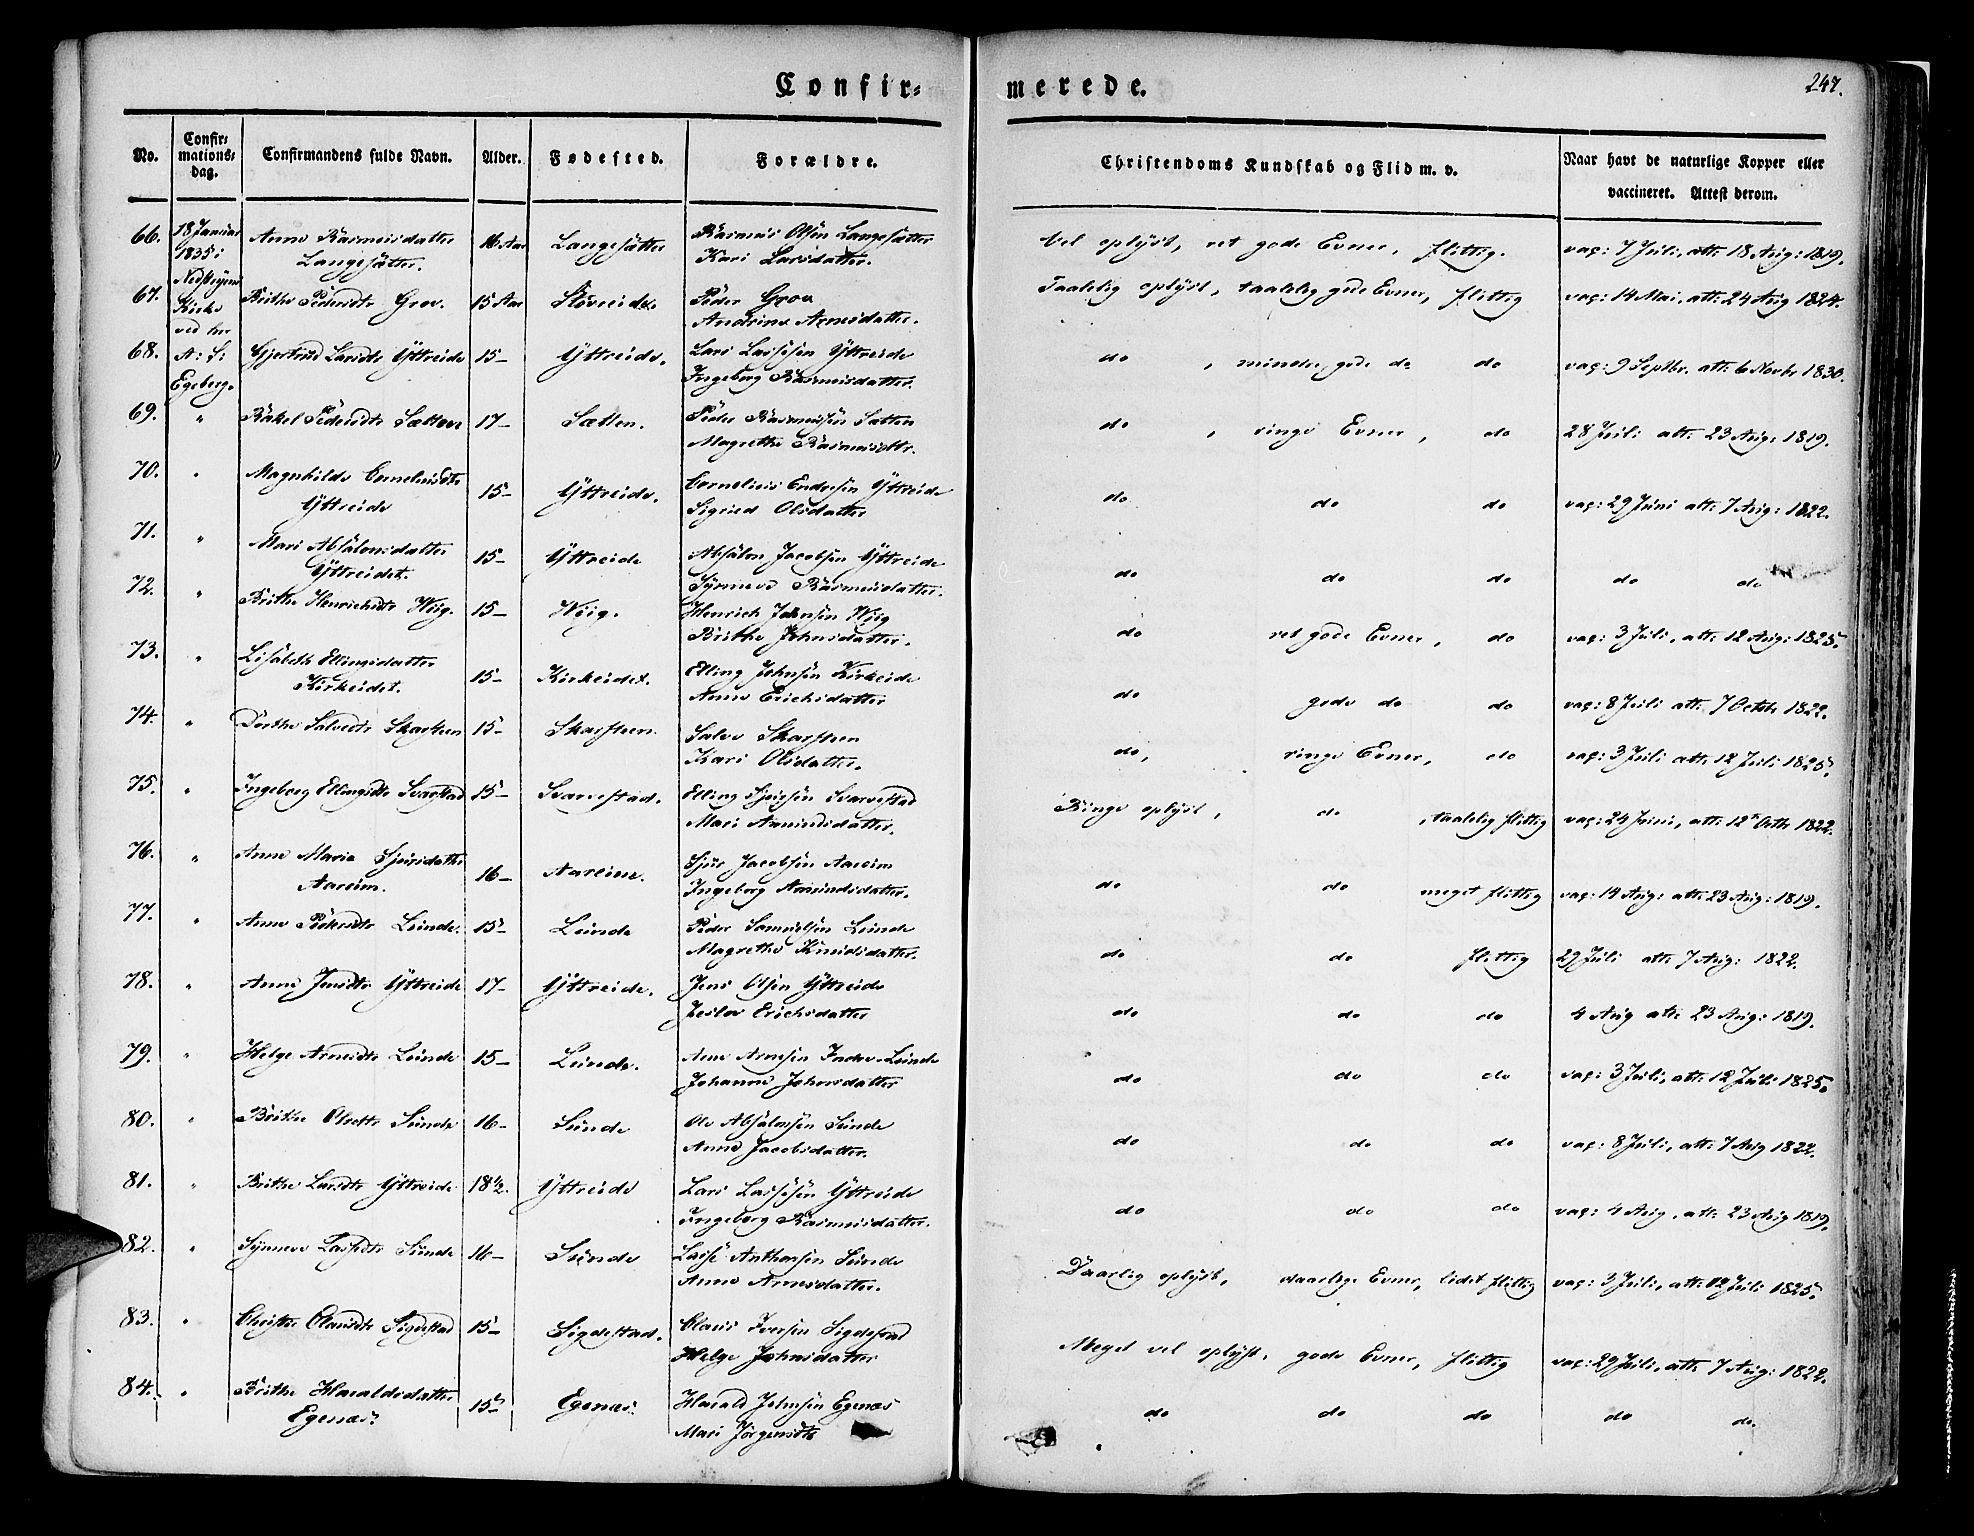 Confir= merede. 247.
No. Confir= mations= dag. Confirmandens fulde Navn. Alder. Fødested. Forældre. Christendoms Kundskab og Flid m. v. Naar havt de naturlige Kopper eller vaccineret. Attest derom.
66. 18 Januar 1835 i Anne Rasmusdatter Langesætter. 16 Aar Langesætter Rasmus Olsen Langesætter Kari Larsdatter. Vel oplyst, ret gode Evner, flittig. vac: 7 Juli, att: 18 Aug: 1819.
67. Kirke ved hr Brithe Pedersdtr Grov. 15 Aar Peder Grov Andrine Arnesdatter. Taalelig oplyst, taalelig gode Evner, flittig vac: 14 Mai, att: 24 Aug 1824.
68. A: S: Egeberg. Gjertrud Larsdtr Yttreide 15 – Yttreide. Lars Lassesen Yttreide Ingeborg Rasmusdatter. do , mindre gode do do vac: 9 Septbr. att: 6 Novbr 1830.
69. " Rakel Pedersdtr Sætten 17 – Sætten. Peder Rasmussen Sætten Magrethe Rasmusdtr. do , ringe Evner, do 28 Juli att: 23 Aug: 1819.
70. " Magnhilde Corneliusdtr Yttreide 15 – Yttreide. Cornelius Endresen Yttreide Sigrid Olsdatter do do do vac: 29 Juni att: 7 Aug: 1822.
71. " Mari Absalonsdatter Yttreidet. 15 – Yttreide Absalon Jacobsen Yttreide Synneve Rasmusdatter. do do do do do
72. " Brithe Henrichsdtr Wiig. 15 – Wiig. Henrich Johnsen Wiig Brithe Johnsdatter. do ret gode Evner, do vac: 3 Juli, att: 12 Aug: 1825.
73. " Lisabeth Ellingsdatter Kirkeidet. 15 – Kirkeidet. Elling Johnsen Kirkeide Anne Erichsdatter do gode do do vac: 8 Juli att: 7 Octbr 1822.
74. " Dorthe Salvesdtr Skarsteen 15 – Skarsteen. Salve Skarsteen Kari Olsdatter. do, ringe Evner, do vac: 3 Juli att: 12 Juli 1825.
75. " Ingeborg Ellingsdtr Svarstad 15 – Svarrestad. Elling Sjursen Svarrestad Mari Amundsdatter. Ringe oplyst, do , taalelig flittig vac: 24 Juni, att: 12 Octbr 1822.
76. " Anne Maria Sjursdatter Aareim. 16 – Aareim. Sjur Jacobsen Aareim Ingeborg Amundsdatter. do do meget flittig vac: 14 Aug: att: 23 Aug: 1819.
77. " Anne Pedersdtr Lunde. 15 – Lunde Peder Samuelsen Lunde Magrethe Knudsdatter. do do flittig 29 Juli att: 7 Aug: 1822.
78. " Anne Jensdtr Yttreide 17 – Yttreide. Jens Olsen Yttreide Erichsdatter do do do 4 Aug att: 23 Aug: 1819.
79. " Helge Arnesdtr Lunde 15 – Lunde. Arne Arnesen Indre-Lunde Johanne Johnsdatter do do do vac: 3 Juli, att: 12 Juli 1825.
80. " Brithe Olsdtr Sunde 16 – Sunde Ole Absalonsen Sunde Anne Jacobsdatter. do do do vac: 8 Juli, att: 7 Aug 1822.
81. " Brithe Larsdtr Yttreide 18 1/2. Yttreide Lars Lassesen Yttreide Ingeborg Rasmusdatter. do do do vac: 4 Aug, att: 23 Aug 1819.
82. " Synneve Lassedtr Sunde 16 – Sunde Lasse Anthonsen Sunde Anne Arnesdatter. Daarlig oplyst, daarlige Evner, lidet flittig vac: 3 Juli, att: 12 Juli 1825.
83. " Clausdtr Sigdestad 15 – Sigdestad. Claus Iversen Sigdestad Helge Johnsdatter Meget vel oplyst, gode Evner, flittig vac: 29 Juli, att: 7 Aug: 1822.
84. " Brithe Haraldsdatter Egenæs. 15 – Egenæs Harald Johnsen Egenæs Mari Jørgensdtr do do do do do.